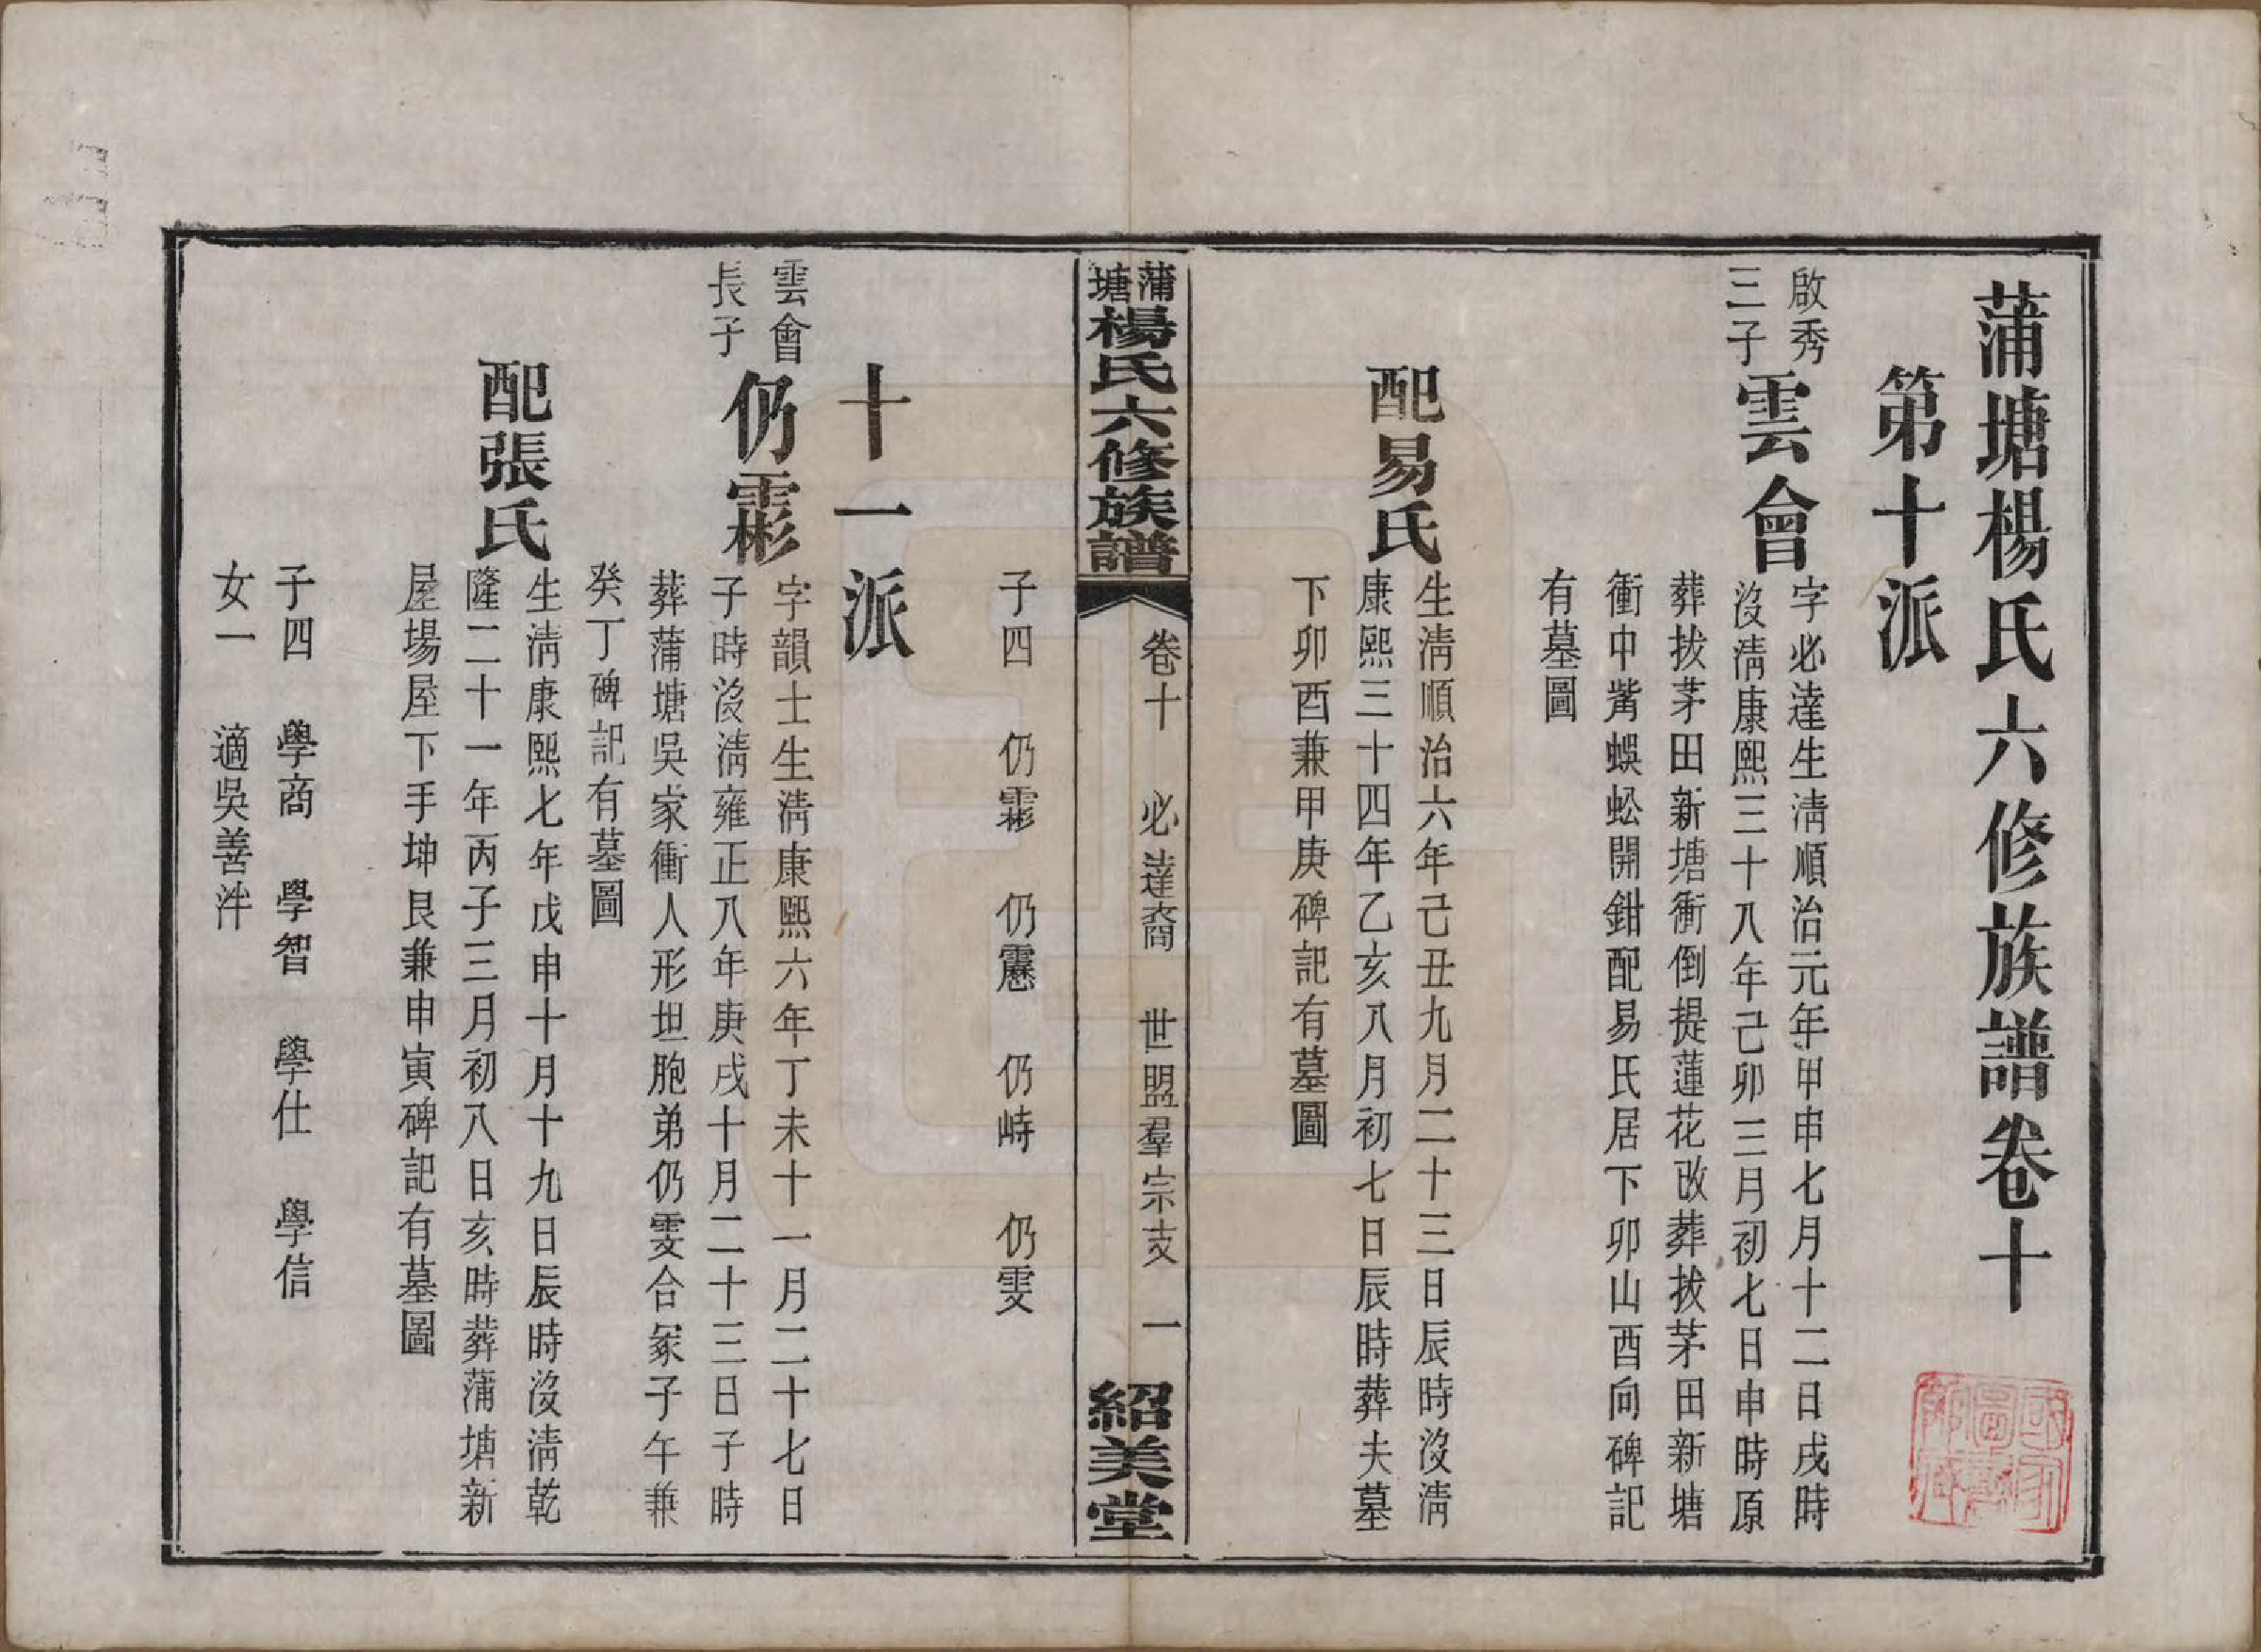 蒲塘楊氏六修族譜卷十
第十派
啟秀
三子
雲會
字必達生清順治元年甲申七月十二日戌時
沒清康熙三十八年己卯三月初七日申時原
葬拔茅田新塘衝倒提蓮花改葬拔茅田新塘
衝中嘴蜈蚣開鉗配易氏居下卯山酉向碑記
有墓圖
配易氏
生清順治六年己丑九月二十三日辰時沒清
康熙三十四年乙亥八月初七日辰時葬夫墓
下卯酉兼甲庚碑記有墓圖
蒲塘楊氏六修族譜
卷十 必達裔 世盟羣宗支 一
紹美堂
子四 仍霦 仍靋 仍峙 仍雯
十一派
雲會
長子
仍霦
字韻士生清康熙六年丁未十一月二十七日
子時沒清雍正八年庚戌十月二十三日子時
葬蒲塘吳家衝人形坦胞弟仍雯合冢子午兼
癸丁碑記有墓圖
配張氏
生清康熙七年戊申十月十九日辰時沒清乾
隆二十一年丙子三月初八日亥時葬蒲塘新
屋場屋下手坤艮兼申寅碑記有墓圖
子四 學商 學智 學仕 學信
女一 適吳善泮